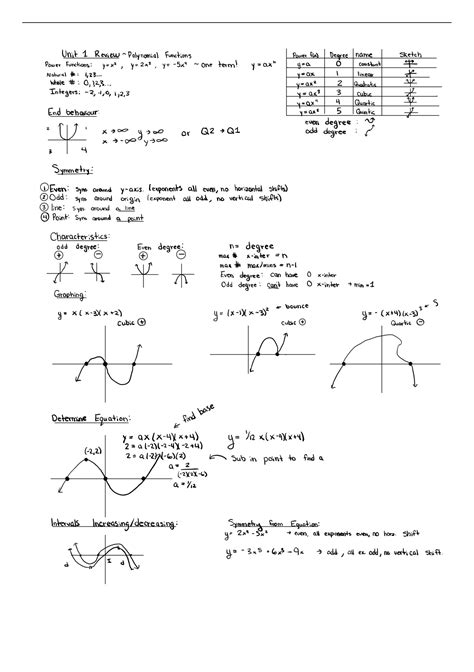 Unit 1 Review ~ Polynomial Functions
Power functions: y=x³, y=2x⁴, y=-5x⁴ ~ one term! y=axⁿ
Natural #: 1,2,3...
Whole #: 0,1,2,3...
Integers: -2,-1,0,1,2,3
Power f(x) Degree name Sketch
y=a 0 constant
y=ax 1 linear
y=ax² 2 Quadratic
y=ax³ 3 Cubic
y=ax⁴ 4 Quartic
y=ax⁵ 5 Quintic
even degree:
odd degree:
End behaviour:
2 1
3 4
x→∞ y→∞
x→-∞ y→∞
or Q2→Q1
Symmetry:
① Even: Sym around y-axis (exponents all even, no horizontal shifts)
② Odd: Sym around origin (exponent all odd, no vertical shifts)
③ line: Sym around a line
④ Point: Sym around a point
Characteristics:
odd degree: Even degree:
+ - + -
n= degree
max # x-inter = n
max # max/mins = n-1
Even degree: can have 0 x-inter
Odd degree: can't have 0 x-inter → min=1
Graphing:
y = x(x-3)(x+2)
Cubic +
y = (x-1)(x-3)² = bounce
Cubic +
y = -(x+4)(x-3)³ = S
Quartic -
Determine Equation:
find base
y = ax(x-4)(x+4)
2 = a(-2)(-2-4)(-2+4)
2 = a(-2)(-6)(2)
a = 2
(-2)(2)(-6)
a = 1/12
(-2,2)
y = 1/12 x(x-4)(x+4)
Sub in point to find a
Intervals Increasing/decreasing:
d I d
Symmetry from Equation:
→ even, all exponents even, no horz. Shift
y = -3x⁵ + 6x³ - 9x → odd, all ex odd, no vertical shift.